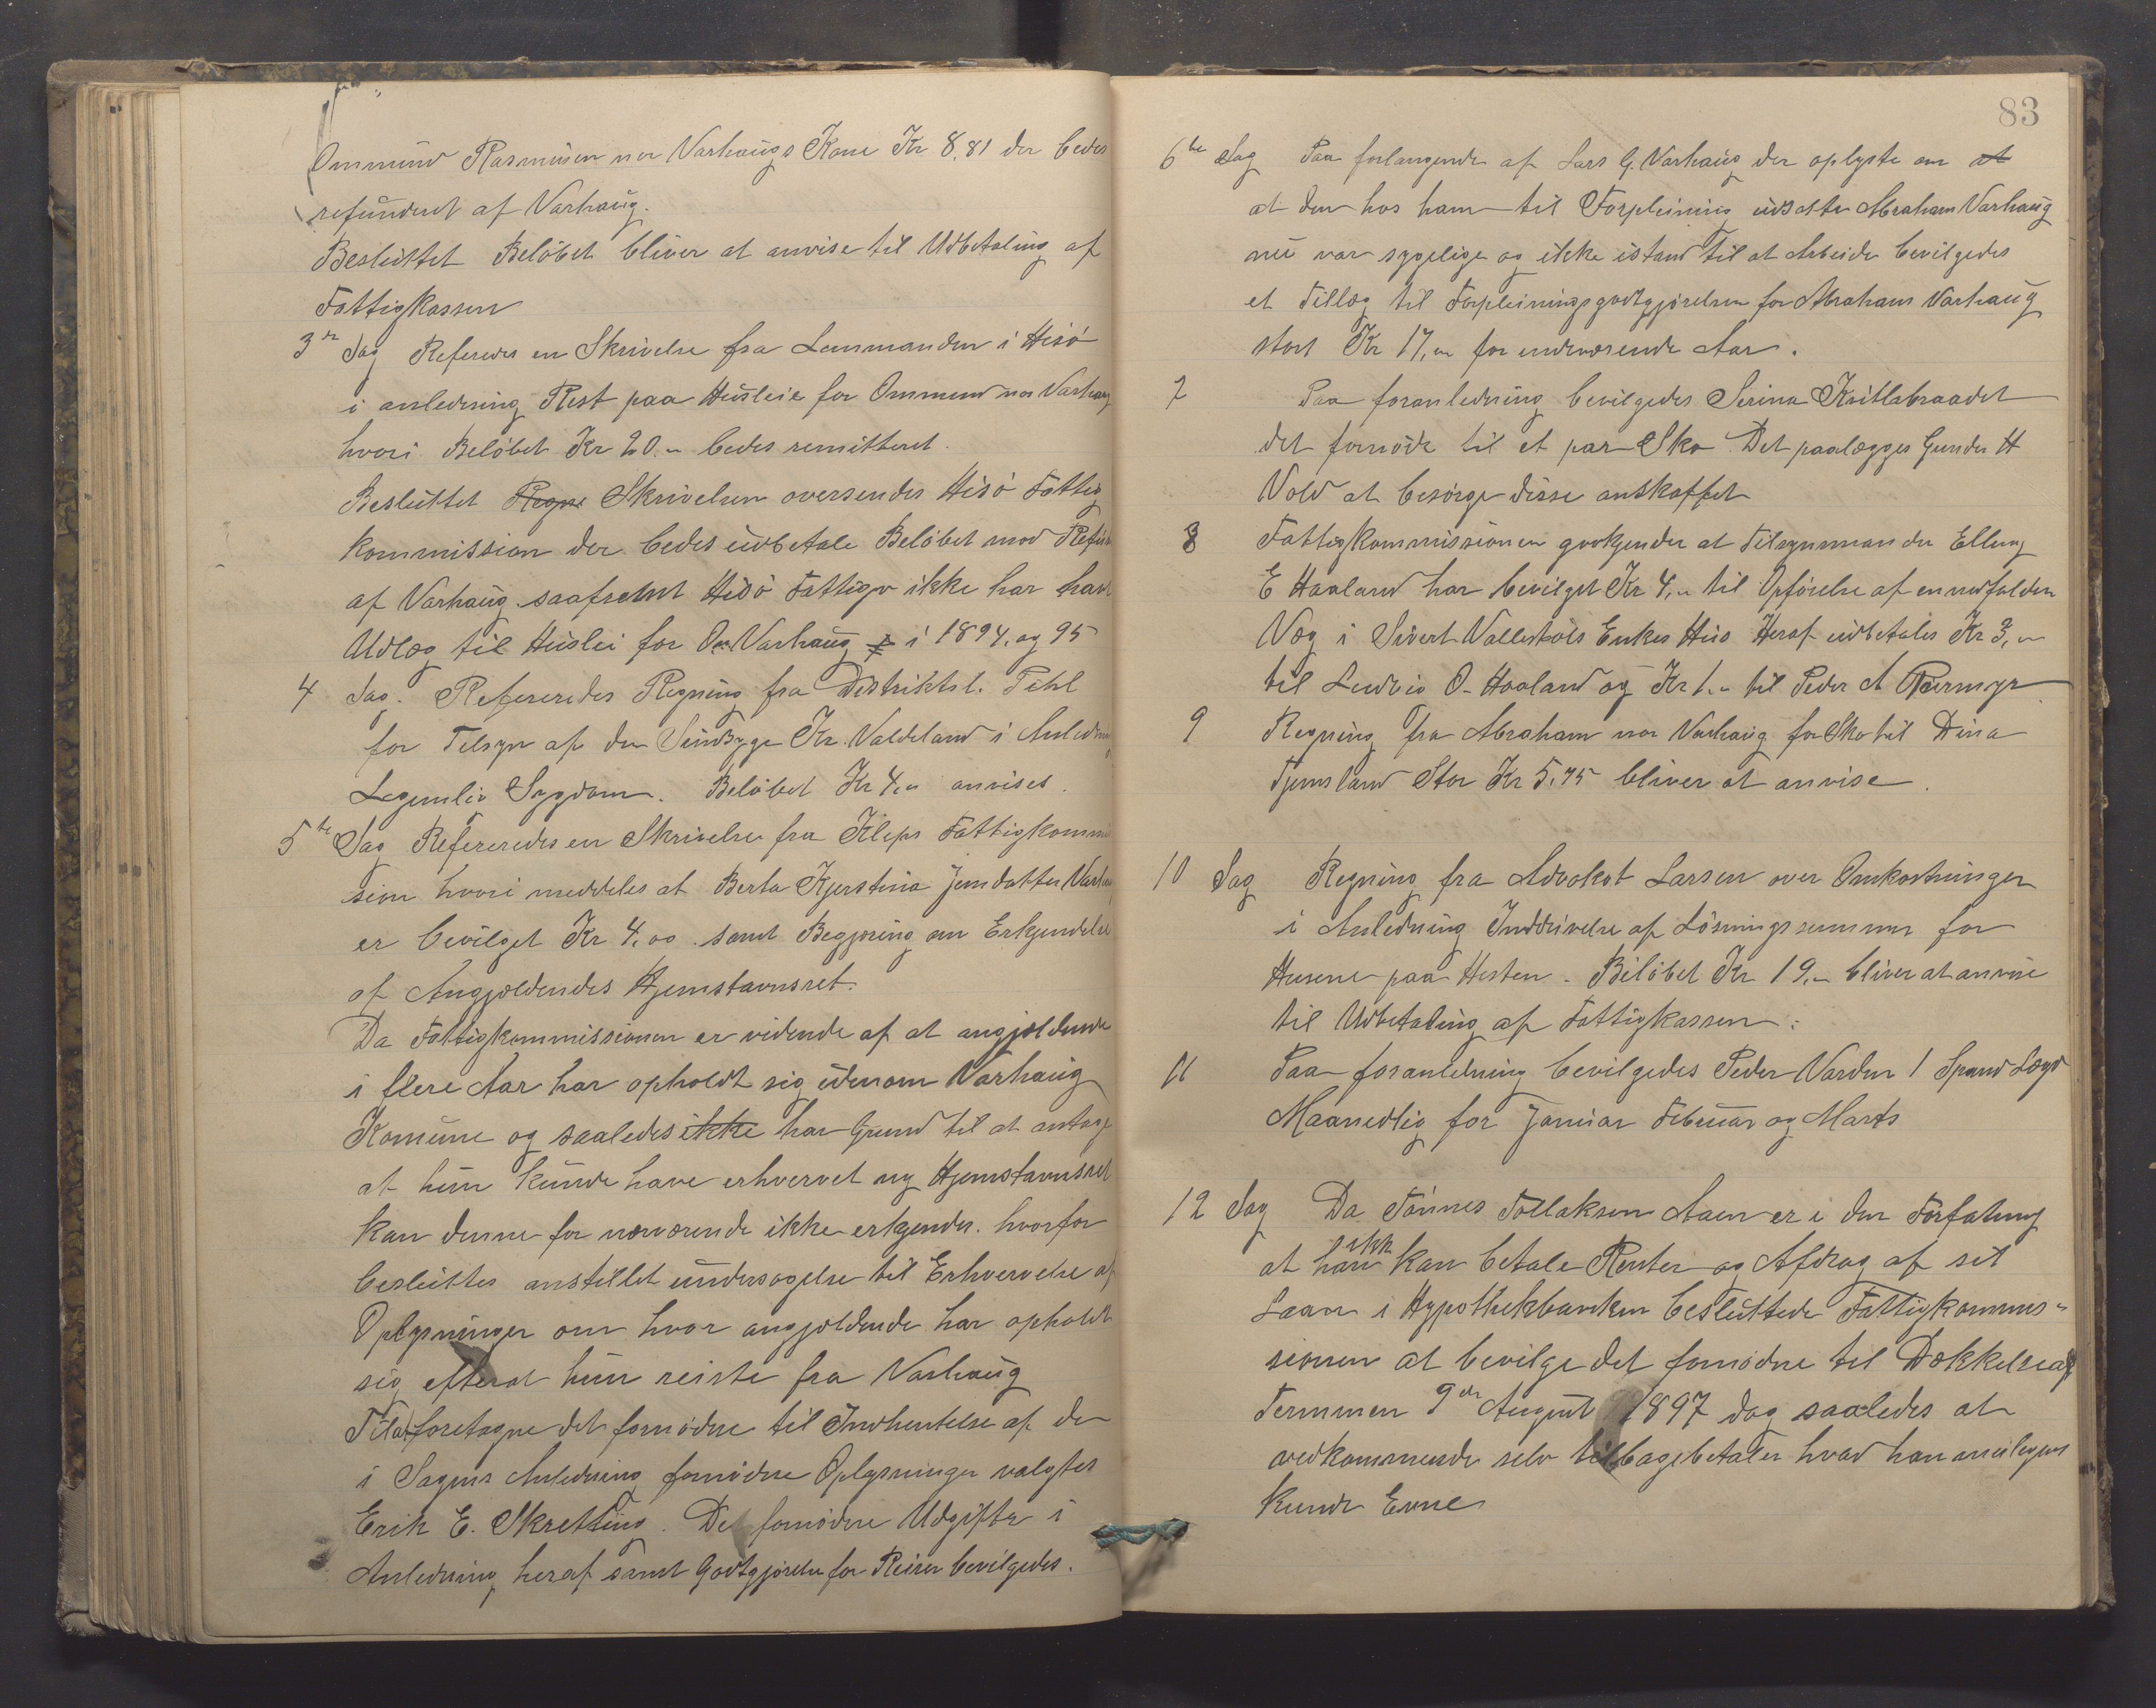 Ommund Rasmusen nor Varhaugs Kone Kr 8,81 der bedes
refunderet af Varhaug.
Besluttet Beløbet bliver at anvise til Udbetaling af
Fattigkassen
3die Sag Referedes en Skrivelse fra Lensmanden i Hisø
i anledning Rest paa Husleie for Ommund nor Varhaug
hvori Beløbet Kr 20.- bedes remitteret.
Besluttet Skrivelsen oversendes Hisø Fattig
kommission der bedes udbetale Beløbet mod Refu
af Varhaug saafremt Hisø Fattigv ikke har havt
Udlæg til Huslei for Om Varhaug i 1894. og 95
4 Sag. Refereredes Regning fra Distriktsl. Pihl
for Tilsyn af den Sindsyge Kr. Valdeland i Anledning
Legemlig Sygdom. Beløbet Kr 4,- anvises.
5te Sag Refereredes en Skrivelse fra Kleps Fattigkommis
sion hvori meddeles at Berta Kjerstina Jensdatter Varhaug
er bevilget Kr 4,00 samt Begjæring om Erkjendelse
af Angjældendes Hjemstavnsret.
Da Fattigkommissionen er vidende af at angjældende
i flere Aar har opholdt sig udenom Varhaug
Komune og saaledes ikke har Grund til at antage
at hun kunde have erhvervet ny Hjemstavnsret
kan denne for nærværende ikke erkjendes. hvorfor
besluttes anstillet undersøgelse til Erhvervelse af
Oplysninger om hvor angjældende har opholdt
sig efterat hun reiste fra Varhaug
Til at foretagne det fornødne til Indhentelse af de
i Sagens Anledning fornødne Oplysninger valgtes
Erik E. Skretting. De fornødne Udgifter i
Anledning heraf samt Godtgjørelse for Reisen bevilgedes.
83
6te Sag Paa forlangende af Lars G. Varhaug der oplyste om at
at den hos ham til Forpleining udsatte Abraham Varhaug
nu var sygelig og ikke istand til at Arbeide bevilgedes
et Tillæg til Forpleiningsgodtgjørelsen for Abraham Varhaug
stort Kr 17,- for indeværende Aar.
7 Paa foranledning bevilgedes Serina Kvitlabraadet
det fornøde til et par Sko Det paalægges Gunder H
Vold at besørge disse anskaffet
8 Fattigkommissionen godkjender at Tilsynsmanden Elling
E Haaland har bevilget Kr 4,- til Opførelse af en nedfalden
Væg i Sivert Vollestøls Enkes Hus Heraf udbetales Kr 3,-
til Ludvig O. Haaland og Kr 1.- til Peder A
9 Regning fra Abraham nor Varhaug for Sko til Dina
Tjemsland Stor Kr 5,75 bliver at anvise.
10 Sag Regning fra Advokat Larsen over Omkostninger
i Anledning Inddrivelse af Løsningssummen for
Husene paa Hesten. Beløbet Kr 19,- bliver at anvise
til Udbetaling af Fattigkassen.
11 Paa foranledning bevilgedes Peder Varden 1 Spand
Maanedlig for Januar Februar og Marts
12 Sag Da Tønnes Tollaksen Aaen er i den Forfatning
at han ikk kan betale Renter og Afdrag af sit
Laan i Hypothekbanken besluttede Fattigkommis-
sionen at bevilge det fornødne til Dækkelse af
Terminen 9de August 1897 dog saaledes at
vedkommende selv tilbagebetaler hvad han
kunde Evne